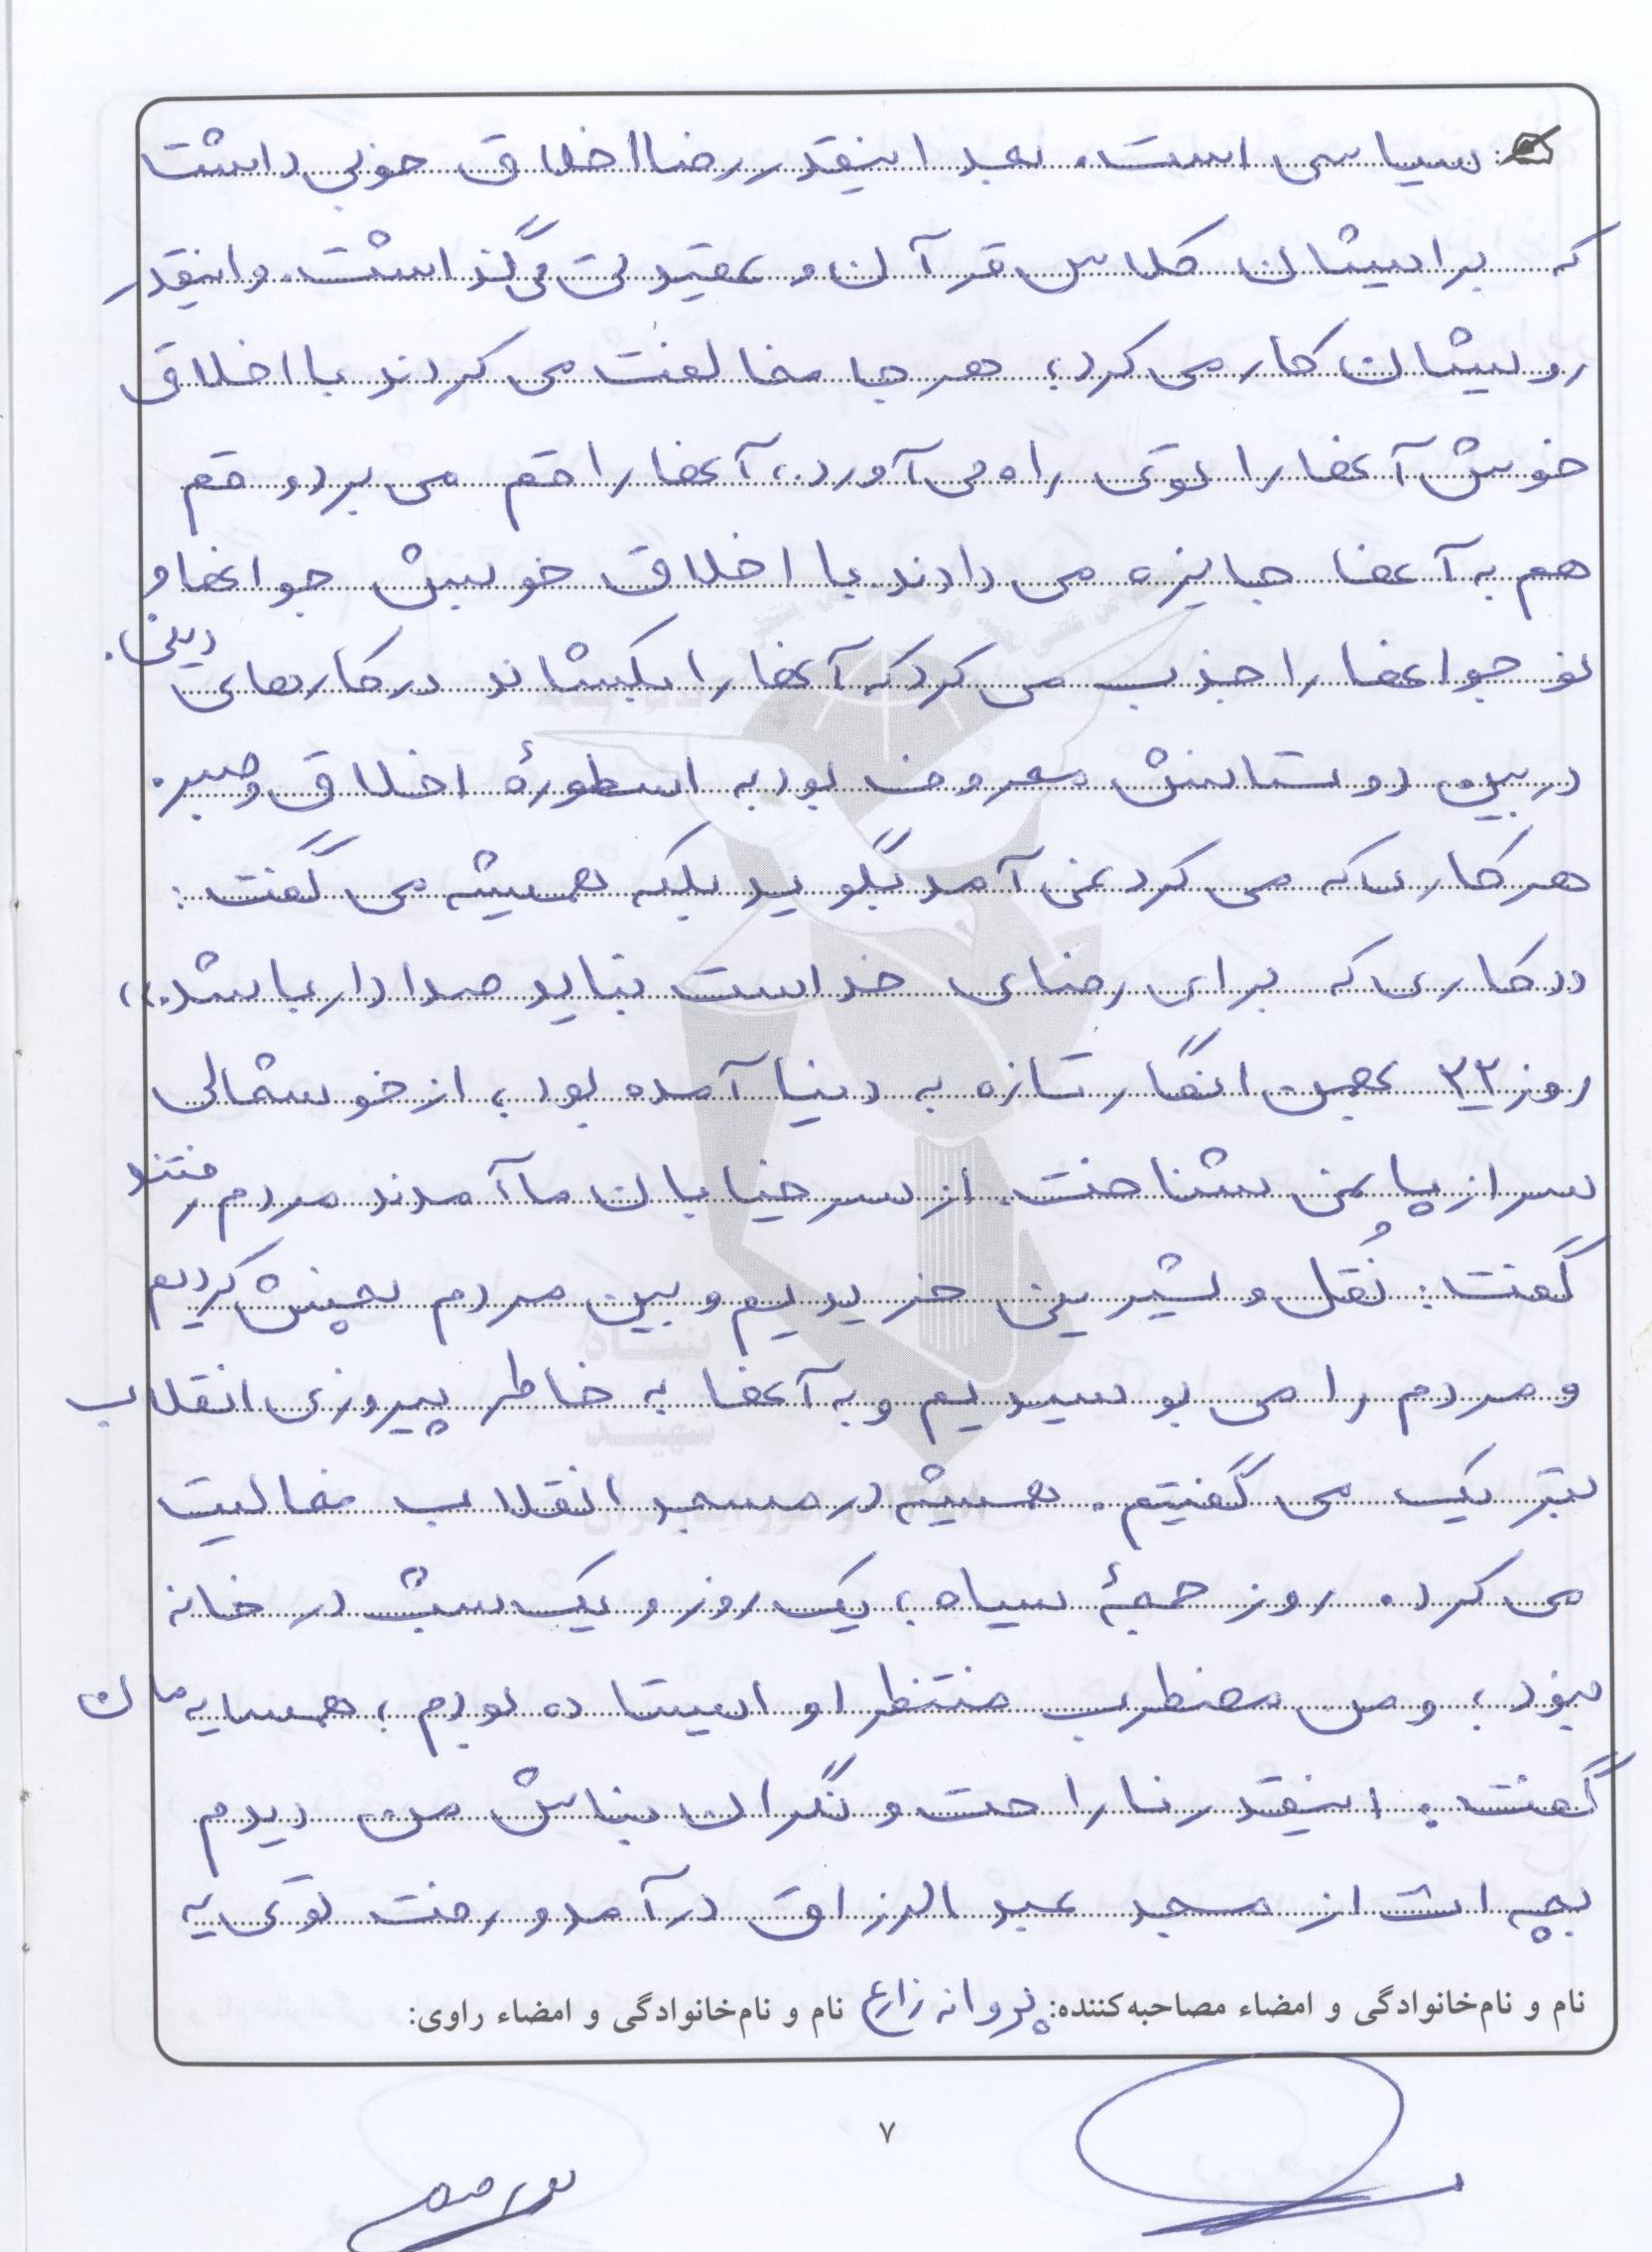 سیاسی است. بعد اینقدر رضا اخلاق خوبی داشت
که برایشان کلاس قرآن و عقیدتی می‌گذاشت. و اینقدر
رویشان کار می کرد، هر جا مخالفت می کردند با اخلاق
خوش آنها را توی راه می آورد، آنها را قم می برد و قم
هم به آنها جایزه می دادند. با اخلاق خوبش جوانها و
نو جوانها را جذب می کرد که آنها را بکشاند در کارهای دینی.
در بین دوستانش معروف بود به اسطورهٔ اخلاق و صبر.
هر کاری که می کرد نمی آمد بگوید بلکه همیشه می گفت:
«کاری که برای رضای خداست نباید صدادار باشد.»
روز ۲۲ بهمن انگار تازه به دنیا آمده بود، از خوشحالی
سر از پا نمی شناخت. از سر خیابان ما آمدند مردم رفتند
گفت: نُقل و شیرینی خریدیم و بین مردم پخش کردیم
و مردم را می بوسیدیم و به آنها به خاطر پیروزی انقلاب
تبریک می گفتیم. همیشه در مسجد انقلاب فعالیت
می کرد. روز جمعهٔ سیاه، یک روز و یک شب در خانه
نبود، و من مضطرب منتظر او ایستاده بودم، همسایه مان
گفت: اینقدر ناراحت و نگران نباش من دیدم
بچه ات از مسجد عبدالرزاق درآمد و رفت توی یه
نام و نام‌خانوادگی و امضاء مصاحبه‌کننده: پروانه زارع نام و نام‌خانوادگی و امضاء راوی:
۷